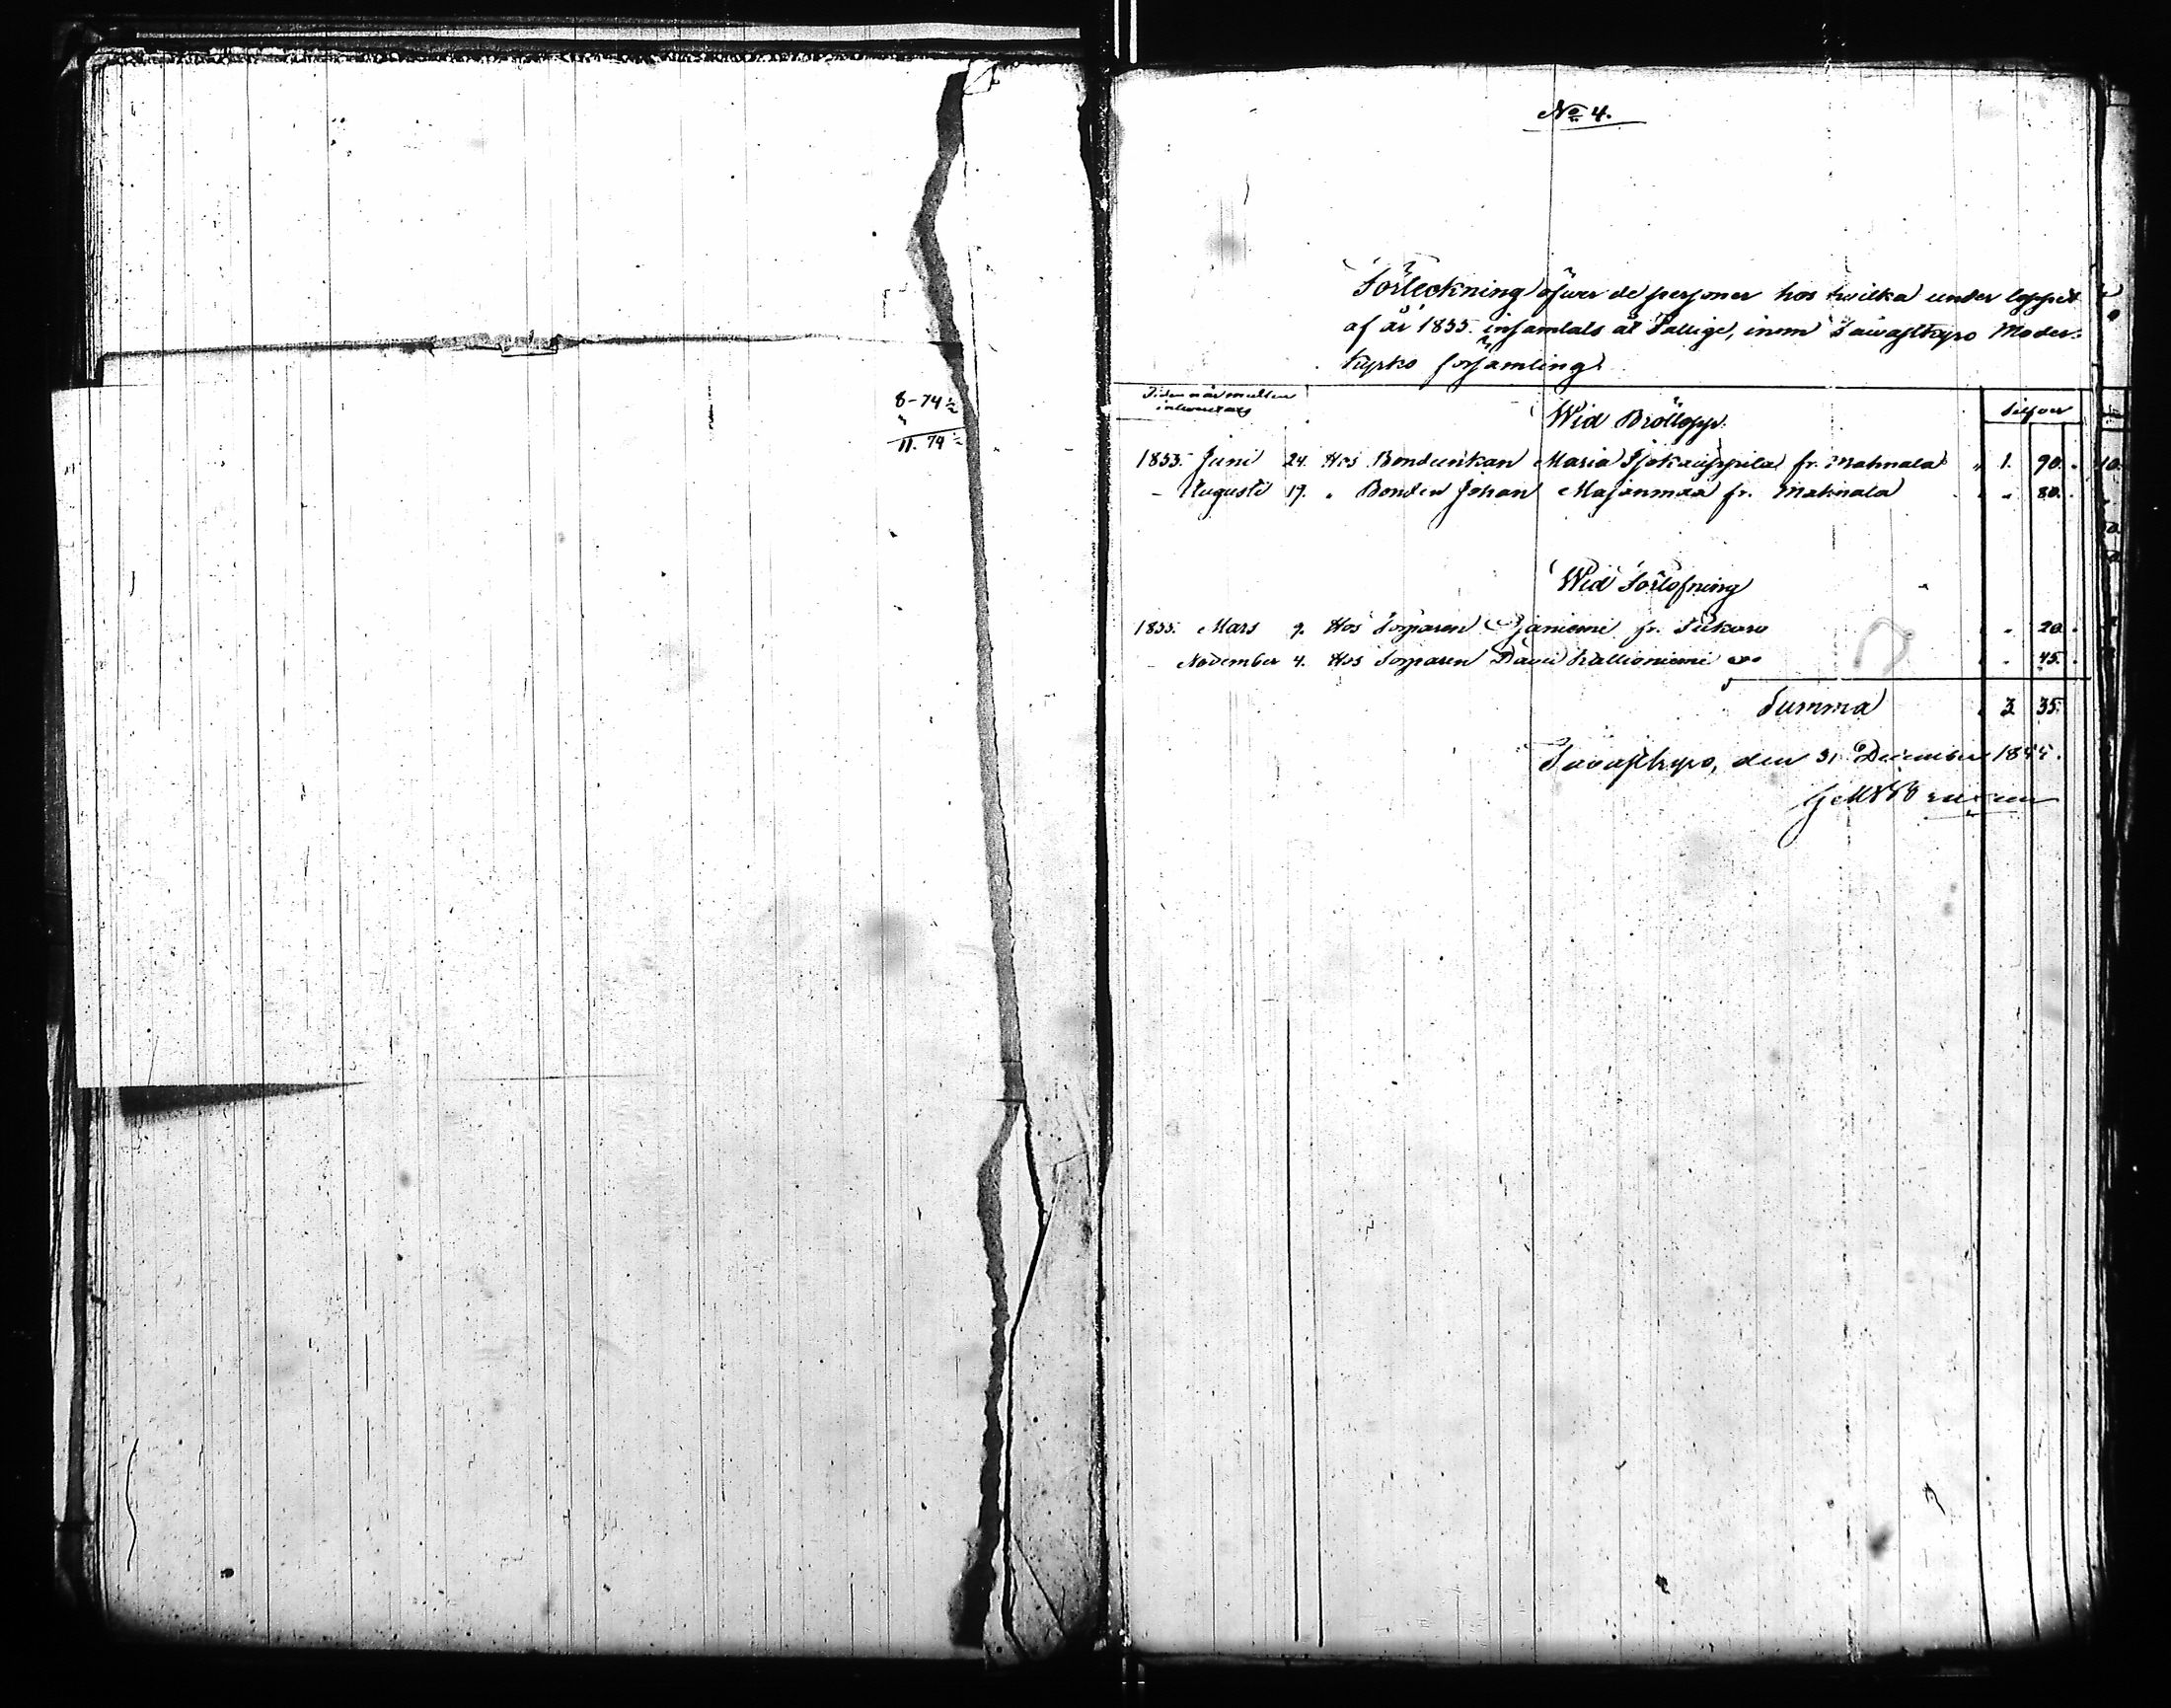 8-74½
"
11. 74½
No 4.
Förteckning öfwer de personer hos hwilka under loppet
af år 1855. insamlats åt Fattige, inom Tawastkyro Moder-
kyrko församling.
Tiden när
Silfver
Wid Bröllopp.
1855. Juni 24. Hos Bondenkan Maria Isokauppila fr. Mahnala " 1. 90.
- Augusti 17. " Bonden Johan Majanmaa fr. Mahnala " 80.
Wid Förlofning
1855. Mars 9. Hos Torparen fr. " 20.
- November 4. Hos Torparen David Kallioniemi " 45.
Summa 3 35.
Tavastkyro, den 31 December 1855.